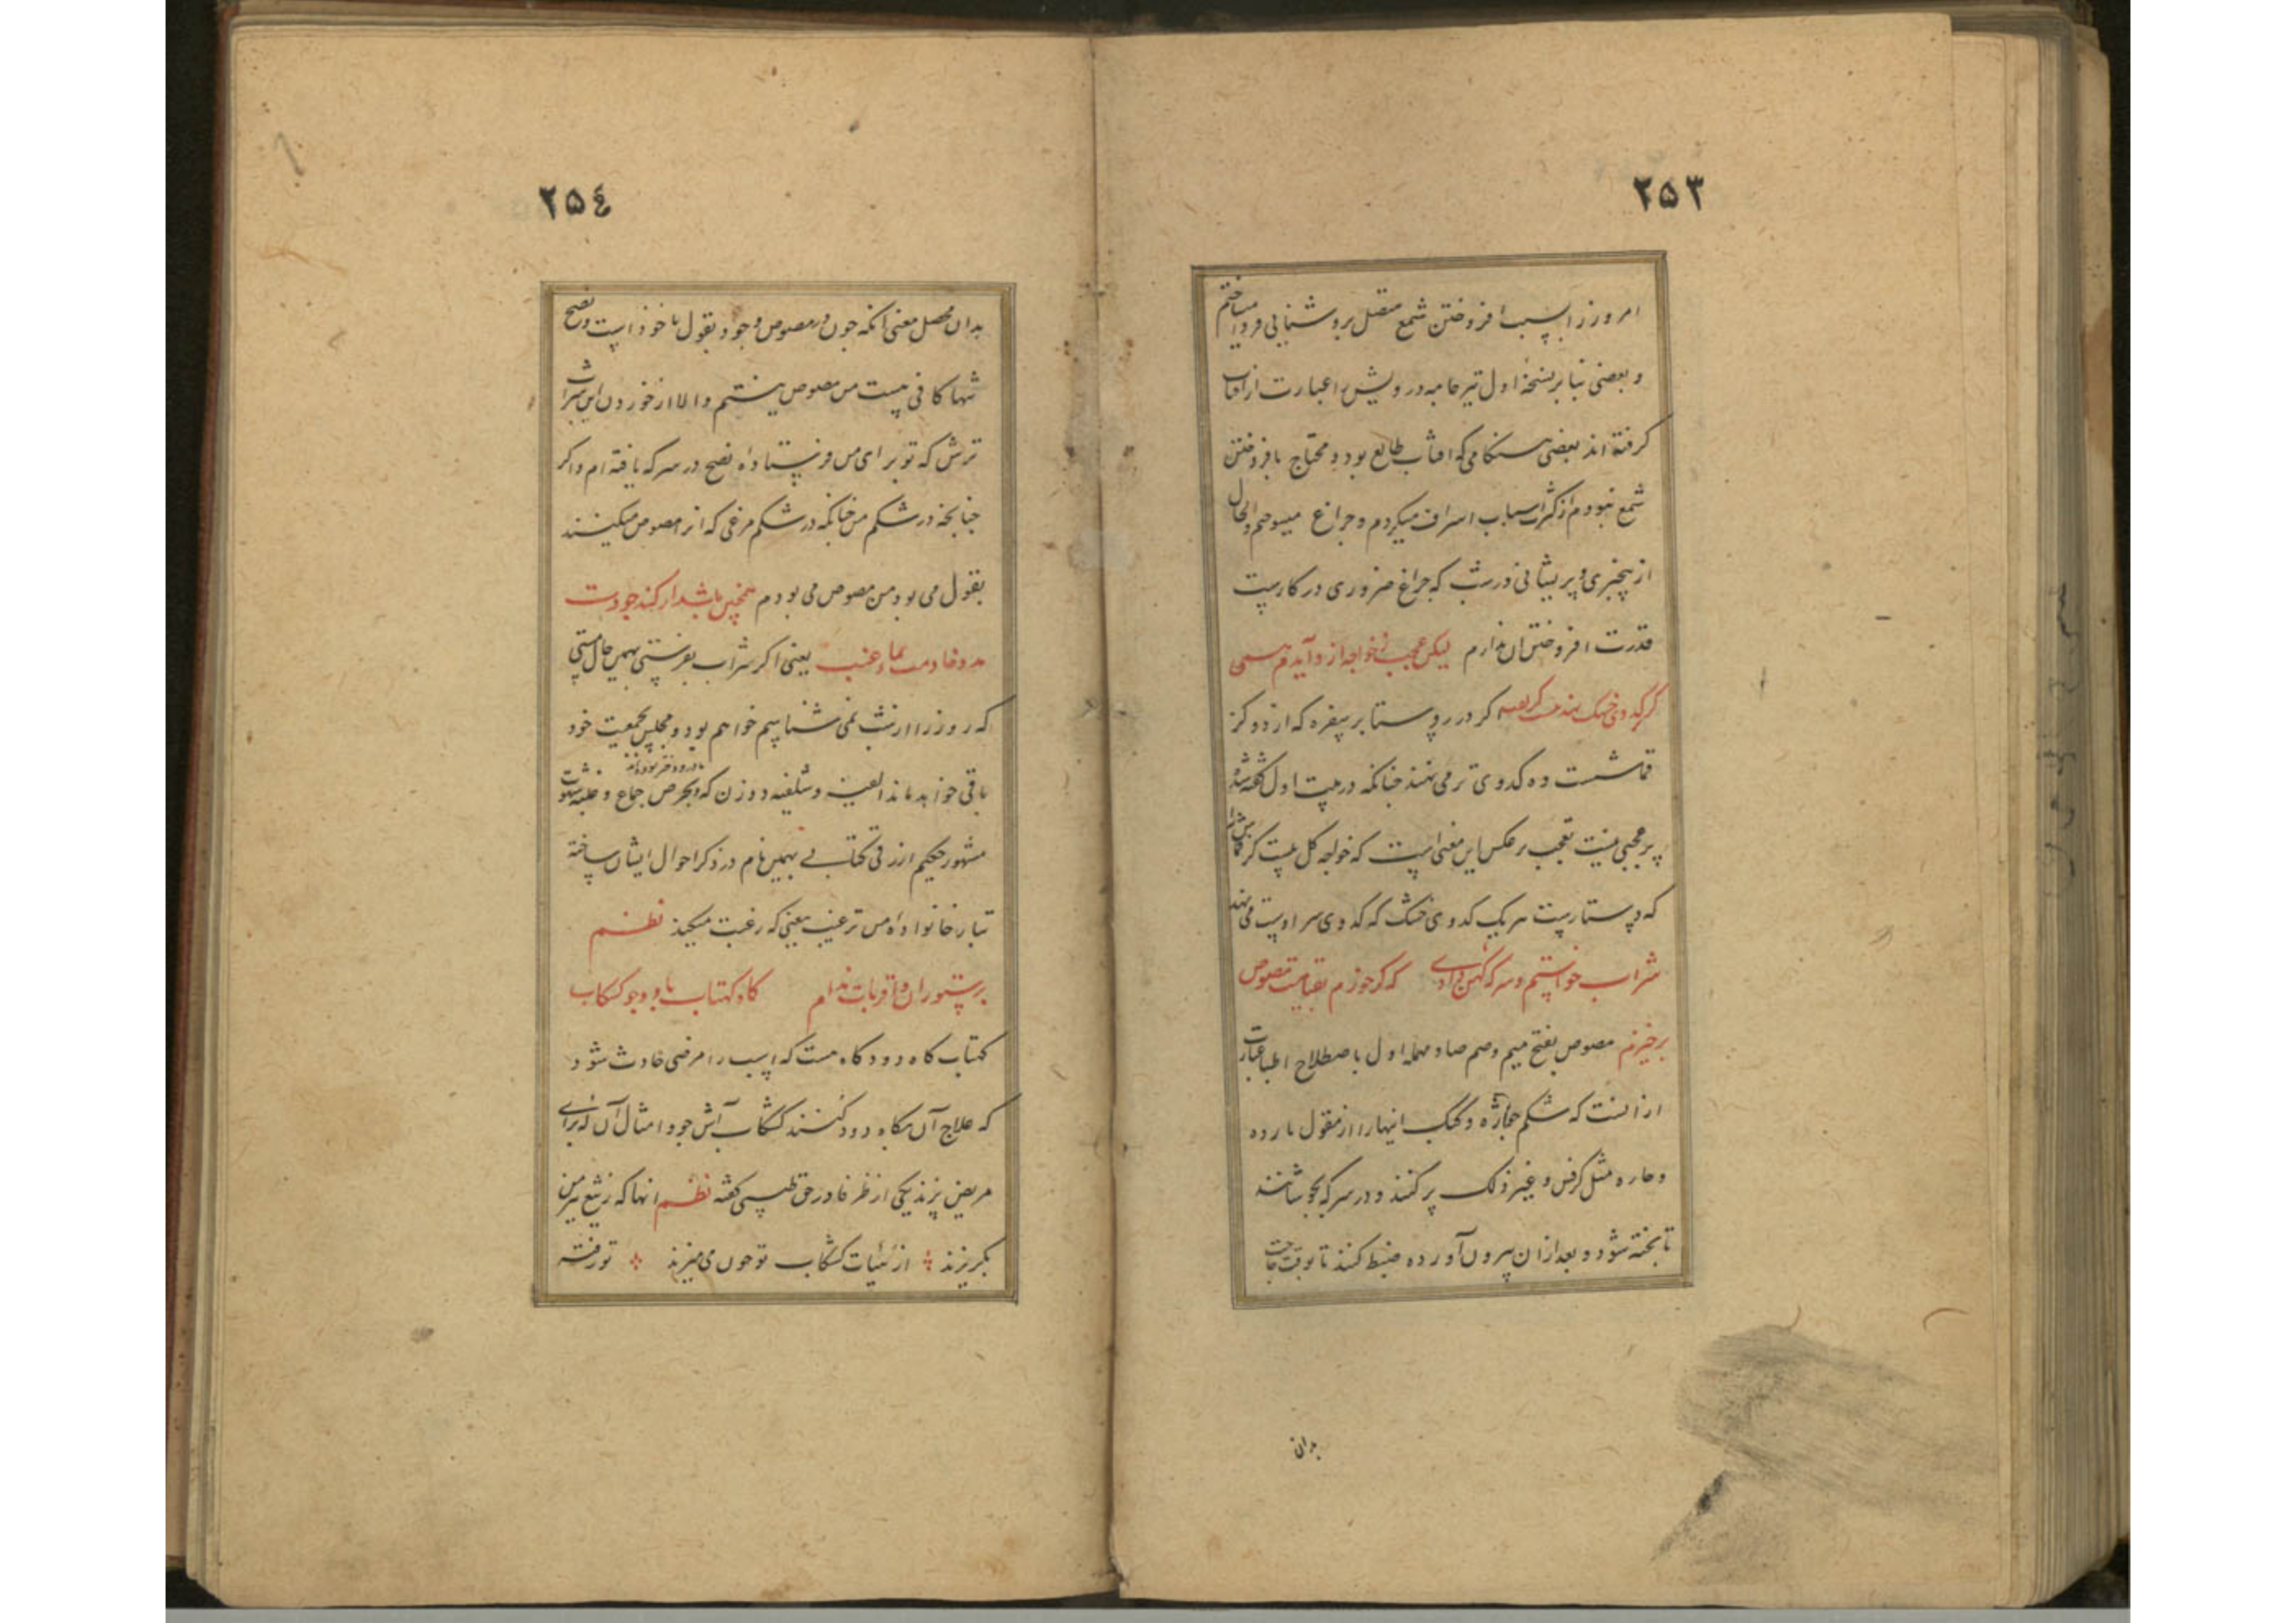 ۲۵۳
امروز را بسبب افروختن شمع متصل بروشنایی فردا میساختم
و بعضی بنا بر نسخهٔ اول تیر جامه درویش را عبارت از آفتاب
کرفته اند یعنی هنکامی که افتاب طالع بود و محتاج بافروختن
شمع نبودم از کثرت اسباب اسراف میکردم و چراغ میسوختم والحال
از بیچیزی و پریشانی در شب که چراغ ضروری در کارست
قدرت افروختن آن ندارم لیکن عجب ز خواجه از آیدم همی
کر در روستا بر سفره که از دو کز
قماشست ده کدوی تر می نهند چنانکه در بیت اول گفته شد
پر عجبی نیست تعجب بر عکس این معنی است که خواجه
که دستارست بر یک کدوی خشک که کدوی سر اوست می نهد
شراب خواستم و سرکهٔ کهن دادی که کر خورم بقیامت مصوص
برخیزم مصوص بفتح میم و ضم صاد مهمله اول باصطلاح اطبا عبارت
از انست که شکم جوازه و کبک اینها را از بقول بارده
و حاره مثل کرفس و غیر ذلک پر کنند و در سرکه بجوشانند
تا پخته شود و بعد ازان بیرون آورده ضبط کنند تا بوقت حاجت
بدان
۲۵٤
بدان محصل معنی آنکه چون در مصوص وجود بقول ماخوذ است و نضج
تنها کافی نیست من مصوص نیستم و الا از خوردن این شراب
ترش که تو برای من فرستاده نضج در سرکه یافته ام و اکر
چنانچه در شکم من چنانکه در شکم مرغی که انرا مصوص میکنند
بقول می بود من مصوص می بودم همچنین باشد ار کند جودت
مدد خادمت بماء عنب یعنی اکر شراب بفرستی بهمین حال مستی
که روز را از شب نمی شناسم خواهم بود و مجلس بجمعیت خود
باقی خواهد ماند الفیه و شلفیه دو زن که بحرص جماع و غلبه شهوت
مادر و دختر بوده اند
مشهور حکیم ازرقی کتابی بهمین نام در ذکر احوال ایشان ساخته
تبار خانواده من ترغب یعنی که رغبت میکند نظم
بر ستوران و اقربات مدام کاه کهتاب باد و جو کشکاب
کهتاب کاه دود کاه است که اسب را مرضی حادث شود
که علاج آن بکاه دود کنند کشکاب آش جو و امثال آن که برای
مریض پزند یکی از ظرفا در حق طبیبی کفته نظم انها که ز تیغ تیز من
بکریزند از کشکاب تو چون می میزند تو رفته